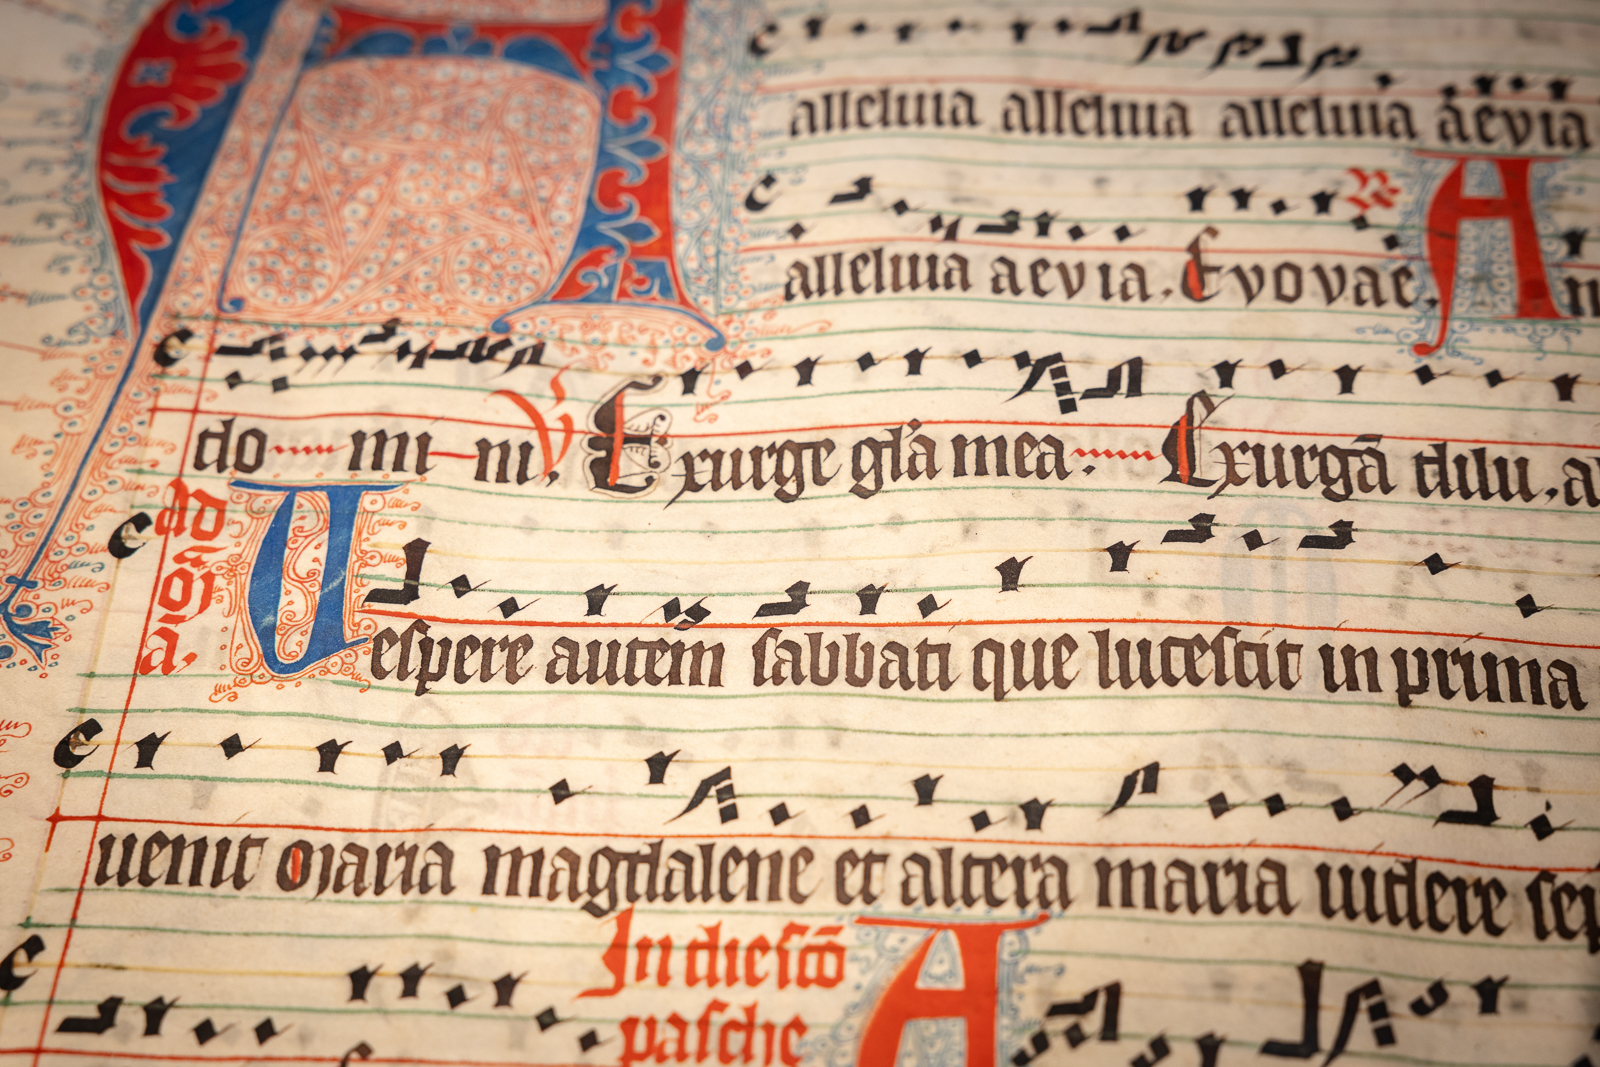 alleluia alleluia alleluia aevia
alleluia aevia. Evovae. An
do mi ni. V Exurge gl̄a mea. Exurgā dilu. a
ad
mḡ
a.
Vespere autem̄ sabbati que lucescit in prima
uenit Maria magdalene et altera maria uidere sep
In die scō
pasche A